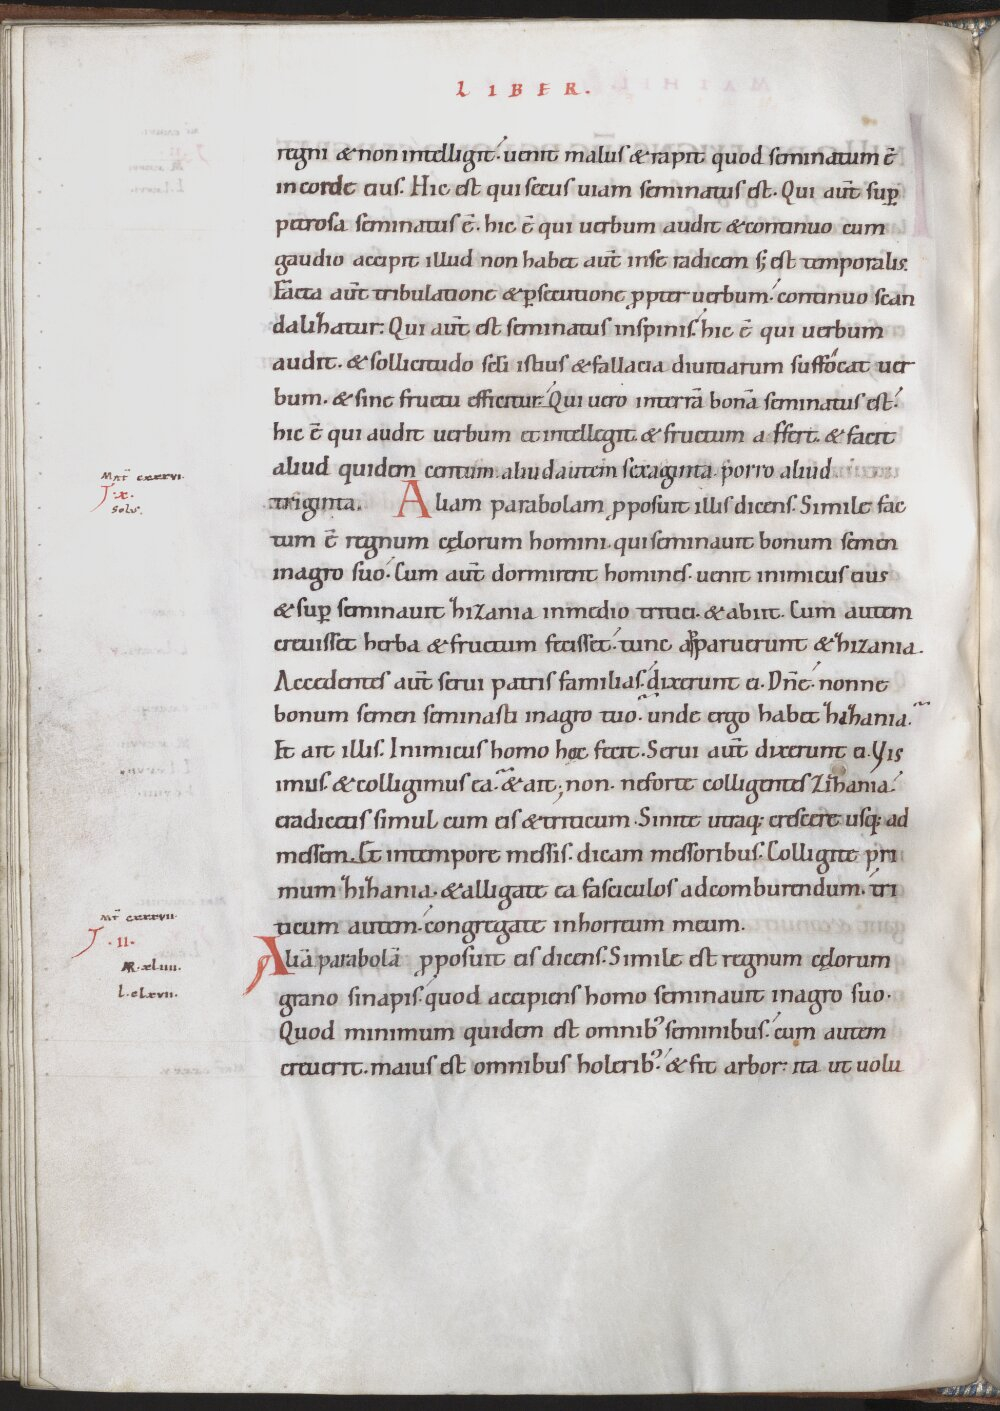 LIBER.
regni & non intelligit. uenit malus & rapit quod seminatum ē
in corde eius. Hic est qui secus uiam seminatus est. Qui aut̄ sup̄
petrosa seminatus ē. hic ē qui uerbum audit & continuo cum
gaudio accipit illud non habet aut̄ in se radicem s; est temporalis.
Facta aut̄ tribulatione & p̄secutione ꝓpter uerbum. continuo scan
dalihatur: Qui aut̄ est seminatus in spinis. hic ē qui uerbum
audit. & sollicitudo sc̄li istius & fallacia diuitiarum suffocat uer
bum. & sine fructu efficitur. Qui uero in terrā bonā seminatus est.
hic ē qui audit uerbum et intellegit. & fructum affert. & facit
aliud quidem centum. aliud autem sexaginta. porro aliud
Mat̄ cxxxvi.
.x.
solus.
triginta. Aliam parabolam ꝓposuit illis dicens. Simile fac
tum ē regnum cęlorum homini. qui seminauit bonum semen
in agro suo. Cum aut̄ dormirent homines. uenit inimicus eius
& sup̄ seminauit hizania in medio tritici. & abiit. Cum autem
creuisset herba & fructum fecisset. tunc apparuerunt & hizania.
Accedentes aut̄ serui patris familias. dixerunt ei. Dn̄e. nonne
bonum semen seminasti in agro tuo. unde ergo habet hihania.
Et ait illis. Inimicus homo hoc fecit. Serui aut̄ dixerunt ei. Vis
imus. & colligimus ea. & ait; non. ne forte colligentes zihania.
eradicetis simul cum eis & triticum. Sinite utraq; crescere usq; ad
messem. Et in tempore messis. dicam messoribus. Colligite pri
mum hihania. & alligate ea fasciculos ad comburendum. tri
Mt̄ cxxxvii.
.II.
MR. xliiii.
L. clxvii.
ticum autem. congregate in horreum meum.
Aliā parabolā ꝓposuit eis dicens. Simile est regnum cęlorum
grano sinapis. quod accipiens homo seminauit in agro suo.
Quod minimum quidem est omnib; seminibus. cum autem
creuerit. maius est omnibus holerib; & fit arbor: ita ut uolu